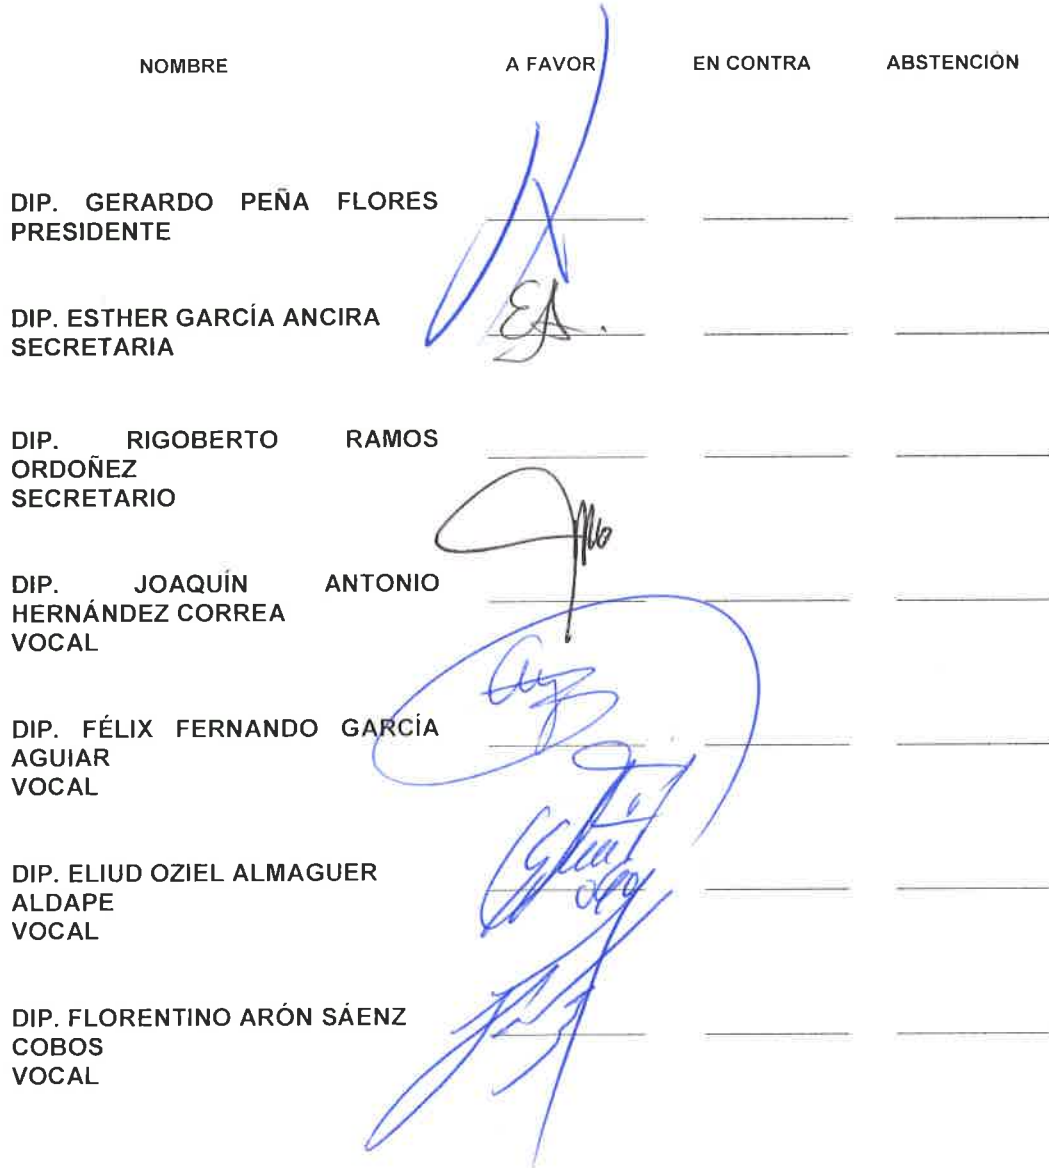 NOMBRE A FAVOR EN CONTRA ABSTENCIÓN
DIP. GERARDO PEÑA FLORES
PRESIDENTE
DIP. ESTHER GARCÍA ANCIRA
SECRETARIA
DIP. RIGOBERTO RAMOS
ORDOÑEZ
SECRETARIO
DIP. JOAQUÍN ANTONIO
HERNÁNDEZ CORREA
VOCAL
DIP. FÉLIX FERNANDO GARCÍA
AGUIAR
VOCAL
DIP. ELIUD OZIEL ALMAGUER
ALDAPE
VOCAL
DIP. FLORENTINO ARÓN SÁENZ
COBOS
VOCAL